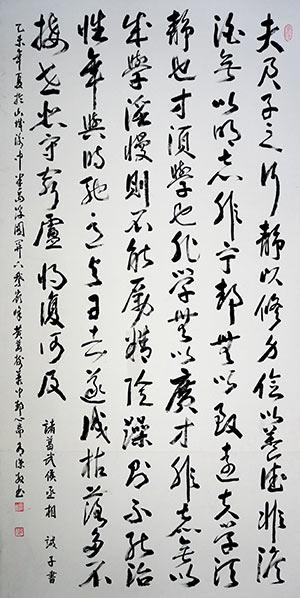 夫君子之行靜以修身儉以養德非澹
泊無以明志非寧靜無以致遠夫學須
靜也才須學也非學無以廣才非志無以
成學淫慢則不能勵精險躁則不能治
性年與時馳意與日去遂成枯落多不
接世悲守窮廬將復何及
諸葛武侯丞相 誡子書
乙未年夏於山城渝中半島浮圖關